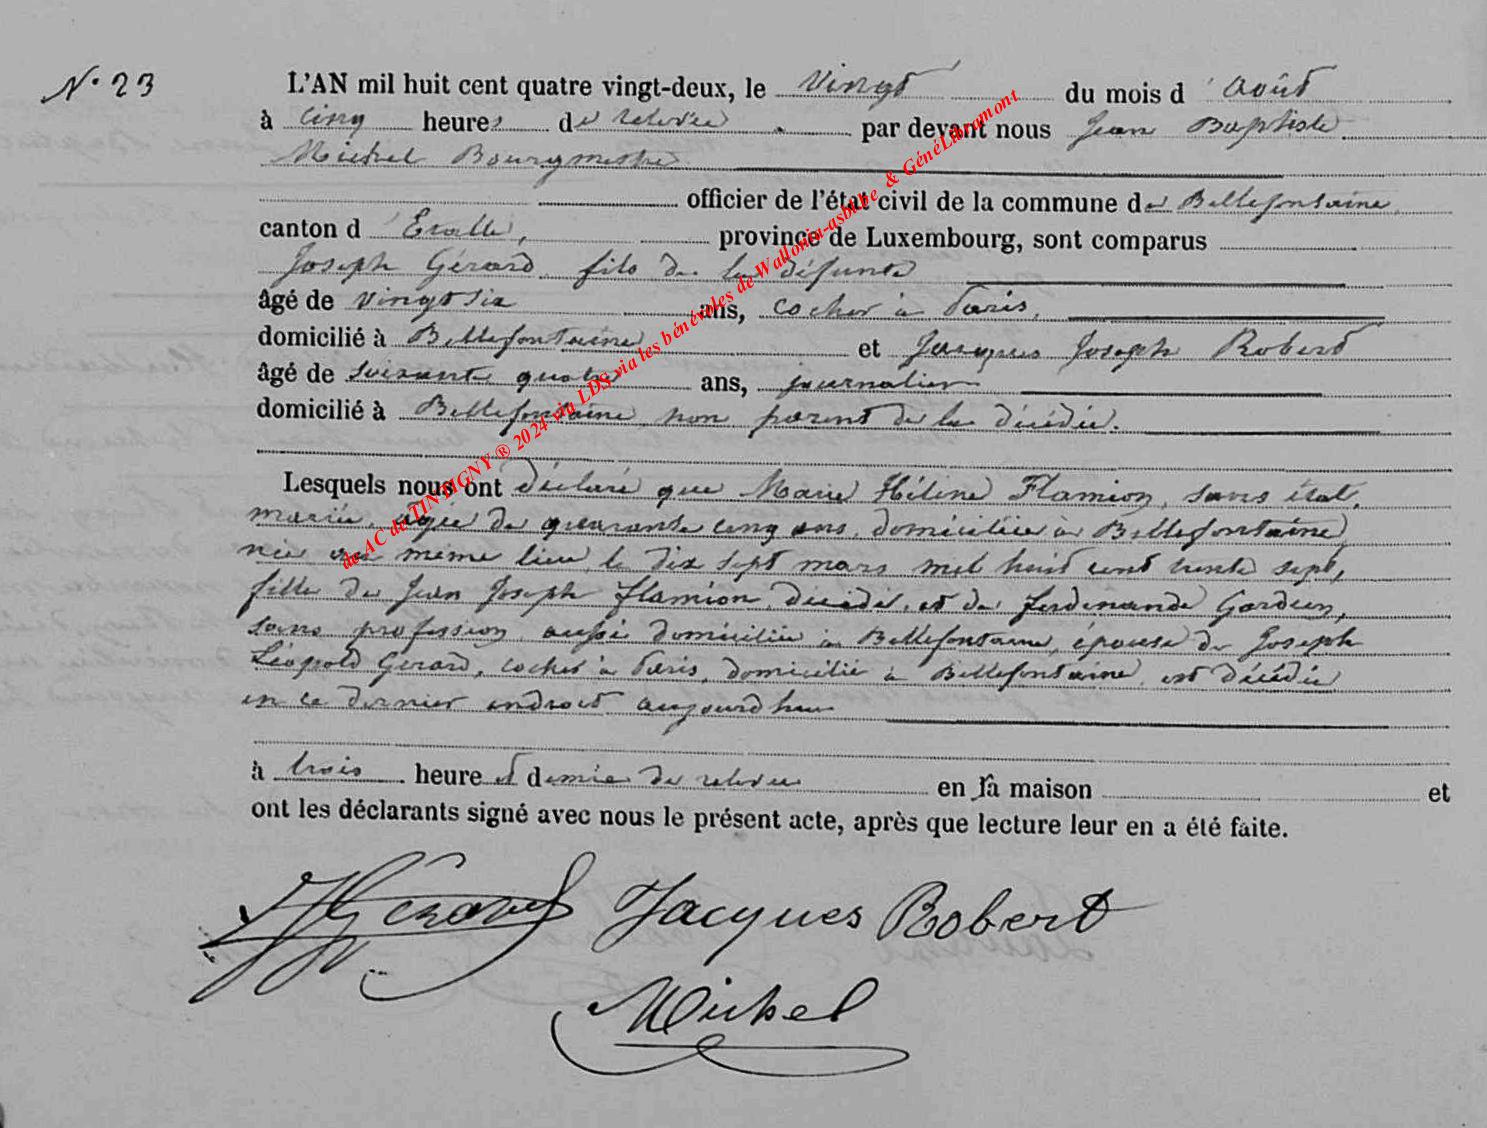 N° 23
L'AN mil huit cent quatre vingt-deux, le vingt du mois d'août
à cinq heures de relevée par devant nous Jean Baptiste
Michel Bourgmestre
officier de l'état civil de la commune de Bellefontaine,
canton d'Etalle, province de Luxembourg, sont comparus
Joseph Gérard fils de la défunte
âgé de vingt six ans, cocher à Paris,
domicilié à Bellefontaine et Jacques Joseph Robert
âgé de soixante quatre ans, journalier
domicilié à Bellefontaine, non parent de la décédée.
Lesquels nous ont déclaré que Marie Hélène Flamion, sans état,
mariée, agée de quarante cinq ans, domiciliée à Bellefontaine,
née au même lieu, le dix sept mars mil huit cent trente sept,
fille de Jean Joseph Flamion, décédé, et de Ferdinande
sans profession, aussi domiciliée à Bellefontaine, épouse de Joseph
Léopold Gérard, cocher à Paris, domicilié à Bellefontaine, est décédée
en ce dernier endroit aujourd'hui
à trois heure et demie de relevée en sa maison et
ont les déclarants signé avec nous le présent acte, après que lecture leur en a été faite.
Gérard Jacques Robert
Michel
de AC de TINTIGNY ® 2024 via LDS via les bénévoles de Wallonia-asbl.be & GénéLibramont